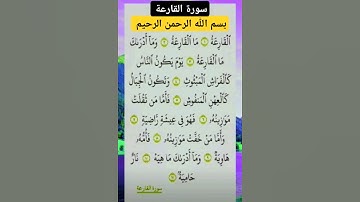 سورة القارعة
بسم الله الرحمن الرحيم
ٱلْقَارِعَةُ ۝ مَا ٱلْقَارِعَةُ ۝ وَمَآ أَدْرَىٰكَ
مَا ٱلْقَارِعَةُ ۝ يَوْمَ يَكُونُ ٱلنَّاسُ
كَٱلْفَرَاشِ ٱلْمَبْثُوثِ ۝ وَتَكُونُ ٱلْجِبَالُ
كَٱلْعِهْنِ ٱلْمَنفُوشِ ۝ فَأَمَّا مَن ثَقُلَتْ
مَوَٰزِينُهُۥ ۝ فَهُوَ فِى عِيشَةٍ رَّاضِيَةٍ ۝
وَأَمَّا مَنْ خَفَّتْ مَوَٰزِينُهُۥ ۝ فَأُمُّهُۥ
هَاوِيَةٌ ۝ وَمَآ أَدْرَىٰكَ مَا هِيَهْ ۝ نَارٌ
حَامِيَةٌۢ ۝
سورة القارعة